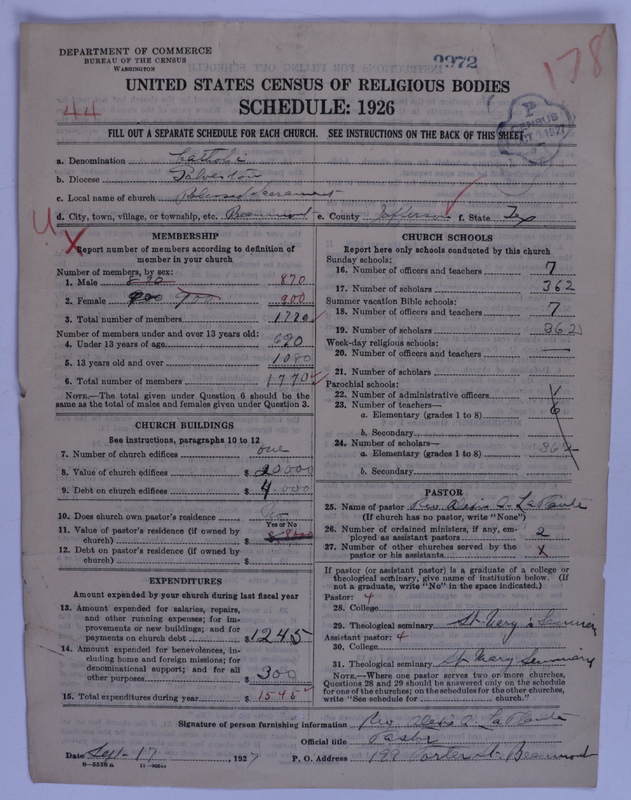 DEPARTMENT OF COMMERCE
BUREAU OF THE CENSUS
WASHINGTON
2972
178
UNITED STATES CENSUS OF RELIGIOUS BODIES
SCHEDULE: 1926
44
FILL OUT A SEPARATE SCHEDULE FOR EACH CHURCH. SEE INSTRUCTIONS ON THE BACK OF THIS SHEET
a. Denomination Catholic
b. Diocese Galveston
c. Local name of church Blessed Sacrament
d. City, town, village, or township, etc. Beaumont e. County Jefferson f. State Tex
MEMBERSHIP
Report number of members according to definition of
member in your church
Number of members, by sex:
1. Male 870 870
2. Female 900 900 900
3. Total number of members 1770
Number of members under and over 13 years old:
4. Under 13 years of age 690
5. 13 years old and over 1080
6. Total number of members 1770
NOTE.—The total given under Question 6 should be
same as the total of males and females given under Question 3.
CHURCH BUILDINGS
See instructions, paragraphs 10 to 12
7. Number of church edifices one
8. Value of church edifices $ 20000
9. Debt on church edifices $ 4000
10. Does church own pastor's residence
Yes or No
11. Value of pastor's residence (if owned by
church) $
12. Debt on pastor's residence (if owned by
church) $
EXPENDITURES
Amount expended by your church during last fiscal year
13. Amount expended for salaries, repairs,
and other running expenses; for im-
provements or new buildings; and for
payments on church debt $ 1245
14. Amount expended for benevolences, in-
cluding home and foreign missions; for
denominational support; and for all
other purposes $ 300
15. Total expenditures during year $ 1545
CHURCH SCHOOLS
Report here only schools conducted by this church
Sunday schools:
16. Number of officers and teachers 7
17. Number of scholars 362
Summer vacation Bible schools:
18. Number of officers and teachers 7
19. Number of scholars 362
Week-day religious schools:
20. Number of officers and teachers
21. Number of scholars
Parochial schools:
22. Number of administrative officers
23. Number of teachers—
a. Elementary (grades 1 to 8) 6
b. Secondary
24. Number of scholars—
a. Elementary (grades 1 to 8) 362
b. Secondary
PASTOR
25. Name of pastor Rev. Alexis A. LaPlante
(If church has no pastor, write "None")
26. Number of ordained ministers, if any, em-
ployed as assistant pastors 2
27. Number of other churches served by the
pastor or his assistants x
If pastor (or assistant pastor) is a graduate of a college or
theological seminary, give name of institution below. (If
not a graduate, write "No" in the space indicated.)
Pastor: 4
28. College
29. Theological seminary St. Mary's Seminary
Assistant pastor: 4
30. College
31. Theological seminary St. Mary Seminary
NOTE.—Where one pastor serves two or more churches,
Questions 28 and 29 should be answered only on the schedule
for one of the churches; on the schedules for the other churches,
write "See schedule for church."
Signature of person furnishing information Rev. Alexis A. LaPlante
Official title Pastor
Date Sept. 17, 1927 P. O. Address 199 Porter St. Beaumont
8—5518a